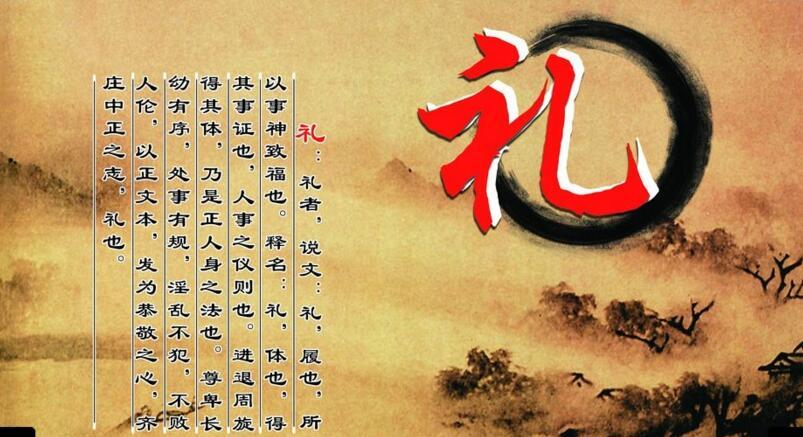 礼
礼：礼者，说文：礼，履也，所
以事神致福也。释名：礼，体也，得
其事证也，人事之仪则也。进退周旋
得其体，乃是正人身之法也。尊卑长
幼有序，处事有规，淫乱不犯，不败
人伦，以正文本，发为恭敬之心，齐
庄中正之志，礼也。